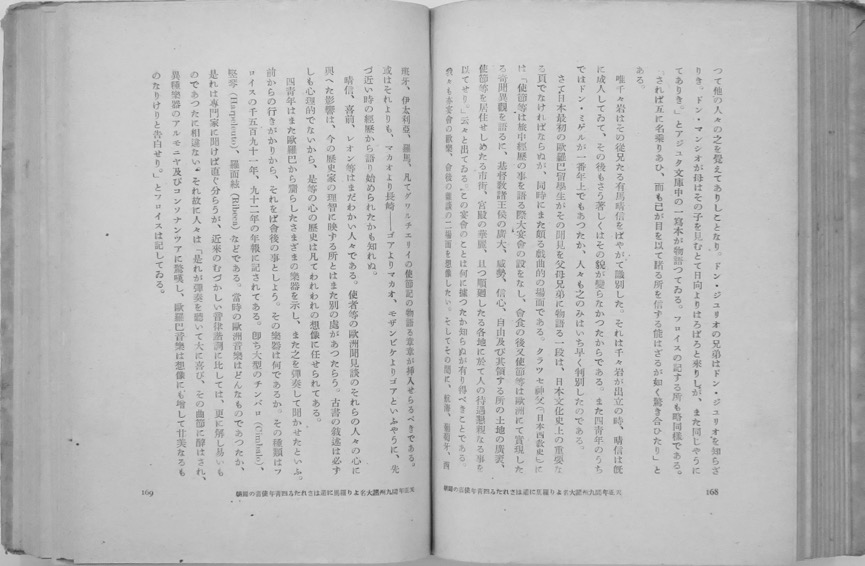 つて他の人々の之を覺えてありしことなり。ドン・ジュリオの兄弟はドン・ジュリオを知らざ
りき。ドン・マンショが母はその子を見むとて日向よりはろばろと來りしが、また同じやうに
てありき。」とアジュダ文庫中の一寫本が物語つてゐる。フロイスの記する所も略同樣である。
「されば互に名乘りあひ、而も已が目を以て睹る所を信ずる能はざるが如く驚き合ひたり」と
ある。
唯千々岩はその從兄たる有馬晴信をばやがて識別した。それは千々岩が出立の時、晴信は旣
に成人してゐて、その後もさう著しくはその貌が變らなかつたからである。また四靑年のうち
ではドン・ミゲルが一番年上でもあつたか、人々も之のみはいち早く判別したのである。
さて日本最初の歐羅巴留學生がその聞見を父母兄弟に物語る一段は、日本文化史上の重要な
る頁でなければならぬが、同時にまた頗る戲曲的の場面である。クラツセ神父(「日本西敎史」に
は「使節等は旅中經歷の事を語る際大宴會の設をなし、會食の後又使節等は歐洲にて實現した
る奇聞異觀を語るに、基督敎諸王侯の廣大、威勢、信心、自由及び其領する所の土地の廣袤、
使節等を居住せしめたる市街、宮殿の華麗、且つ順廻したる各地に於て人の待遇懇親なる事を
以てせり。」云々と出てゐる。この宴會のことは何に據つたか知らぬが有り得べきことである。
我々も亦宴會の歡樂、會後の雜談の二場面を想像したい。そしてその間に、航海、葡萄牙、西
168
天正年間九州諸大名より羅馬に派遣はされたる四靑年使節の歸朝
班牙、伊太利亞、羅馬、凡てグワルチエリイの使節記の物語る章章が挿入せらるべきである。
或はそれよりも、マカオより長崎——ゴアよりマカオ、モザンビケよりゴアといふやうに、先
づ近い時の經歷から語り始められたかも知れぬ。
晴信、喜前、レオン等はまだわかい人々である。使者等の歐洲聞見談のそれらの人々の心に
與へた影響は、今の歷史家の理智に映する所とはまた別の處があつたらう。古書の敍述は必ず
しも心理的でないから、是等の心の歷史は凡てわれわれの想像に任せられてある。
四靑年はまた歐羅巴から齎らしたさまざまの樂器を示し、また之を彈奏して聞かせたといふ。
前からの行きがかりから、それをば會後の事としよう。その樂器は何であるか。その種類はフ
ロイスの千五百九十一年、九十二年の年報に記されてある。卽ち大型のチンバロ (Cimbale)、
堅琴 (Harpelento)、羅面絃 (Ribeca) などである。當時の歐洲音樂はどんなものであつたか、
是れは專門家に聞けば直ぐ分らうが、近來のむづかしい音律諧調に比しては、更に解し易いも
のであつたに相違ない。それ故に人々は「是れが彈奏を聽いて大に喜び、その曲節に醉はされ、
異種樂器のアルモニヤ及びコンソナンツアに驚嘆し、歐羅巴音樂は想像にも增して甘美なるも
のなりけりと告白せり。」とフロイスは記してゐる。
天正年間九州諸大名より羅馬に派遣はされたる四靑年使節の歸朝
169